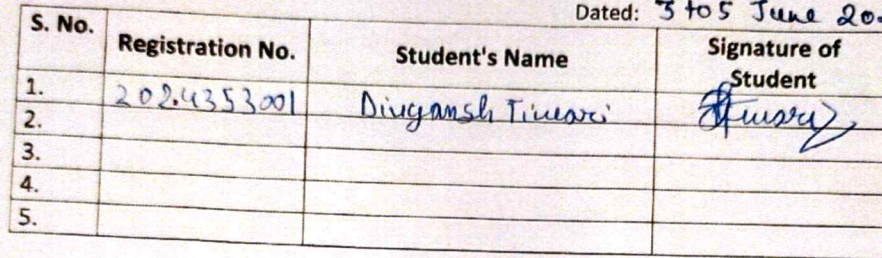 Dated: 3 to 5 June 20
S. No. Registration No. Student's Name Signature of Student
1. 2024353001 Divyansh Tiwari Tiwari
2.
3.
4.
5.